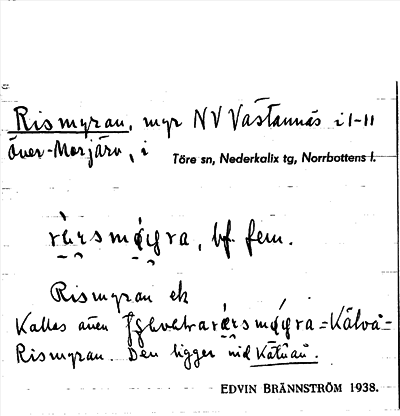 Rismyran, myr NV Västannäs i 1-11
över-Morjärv, i Töre sn, Nederkalix tg, Norrbottens l.
bf. fem.
Rismyran ek
Kallas även Kälvå=
Rismyran. Den ligger vid Kätaån.
EDVIN BRÄNNSTRÖM 1938.